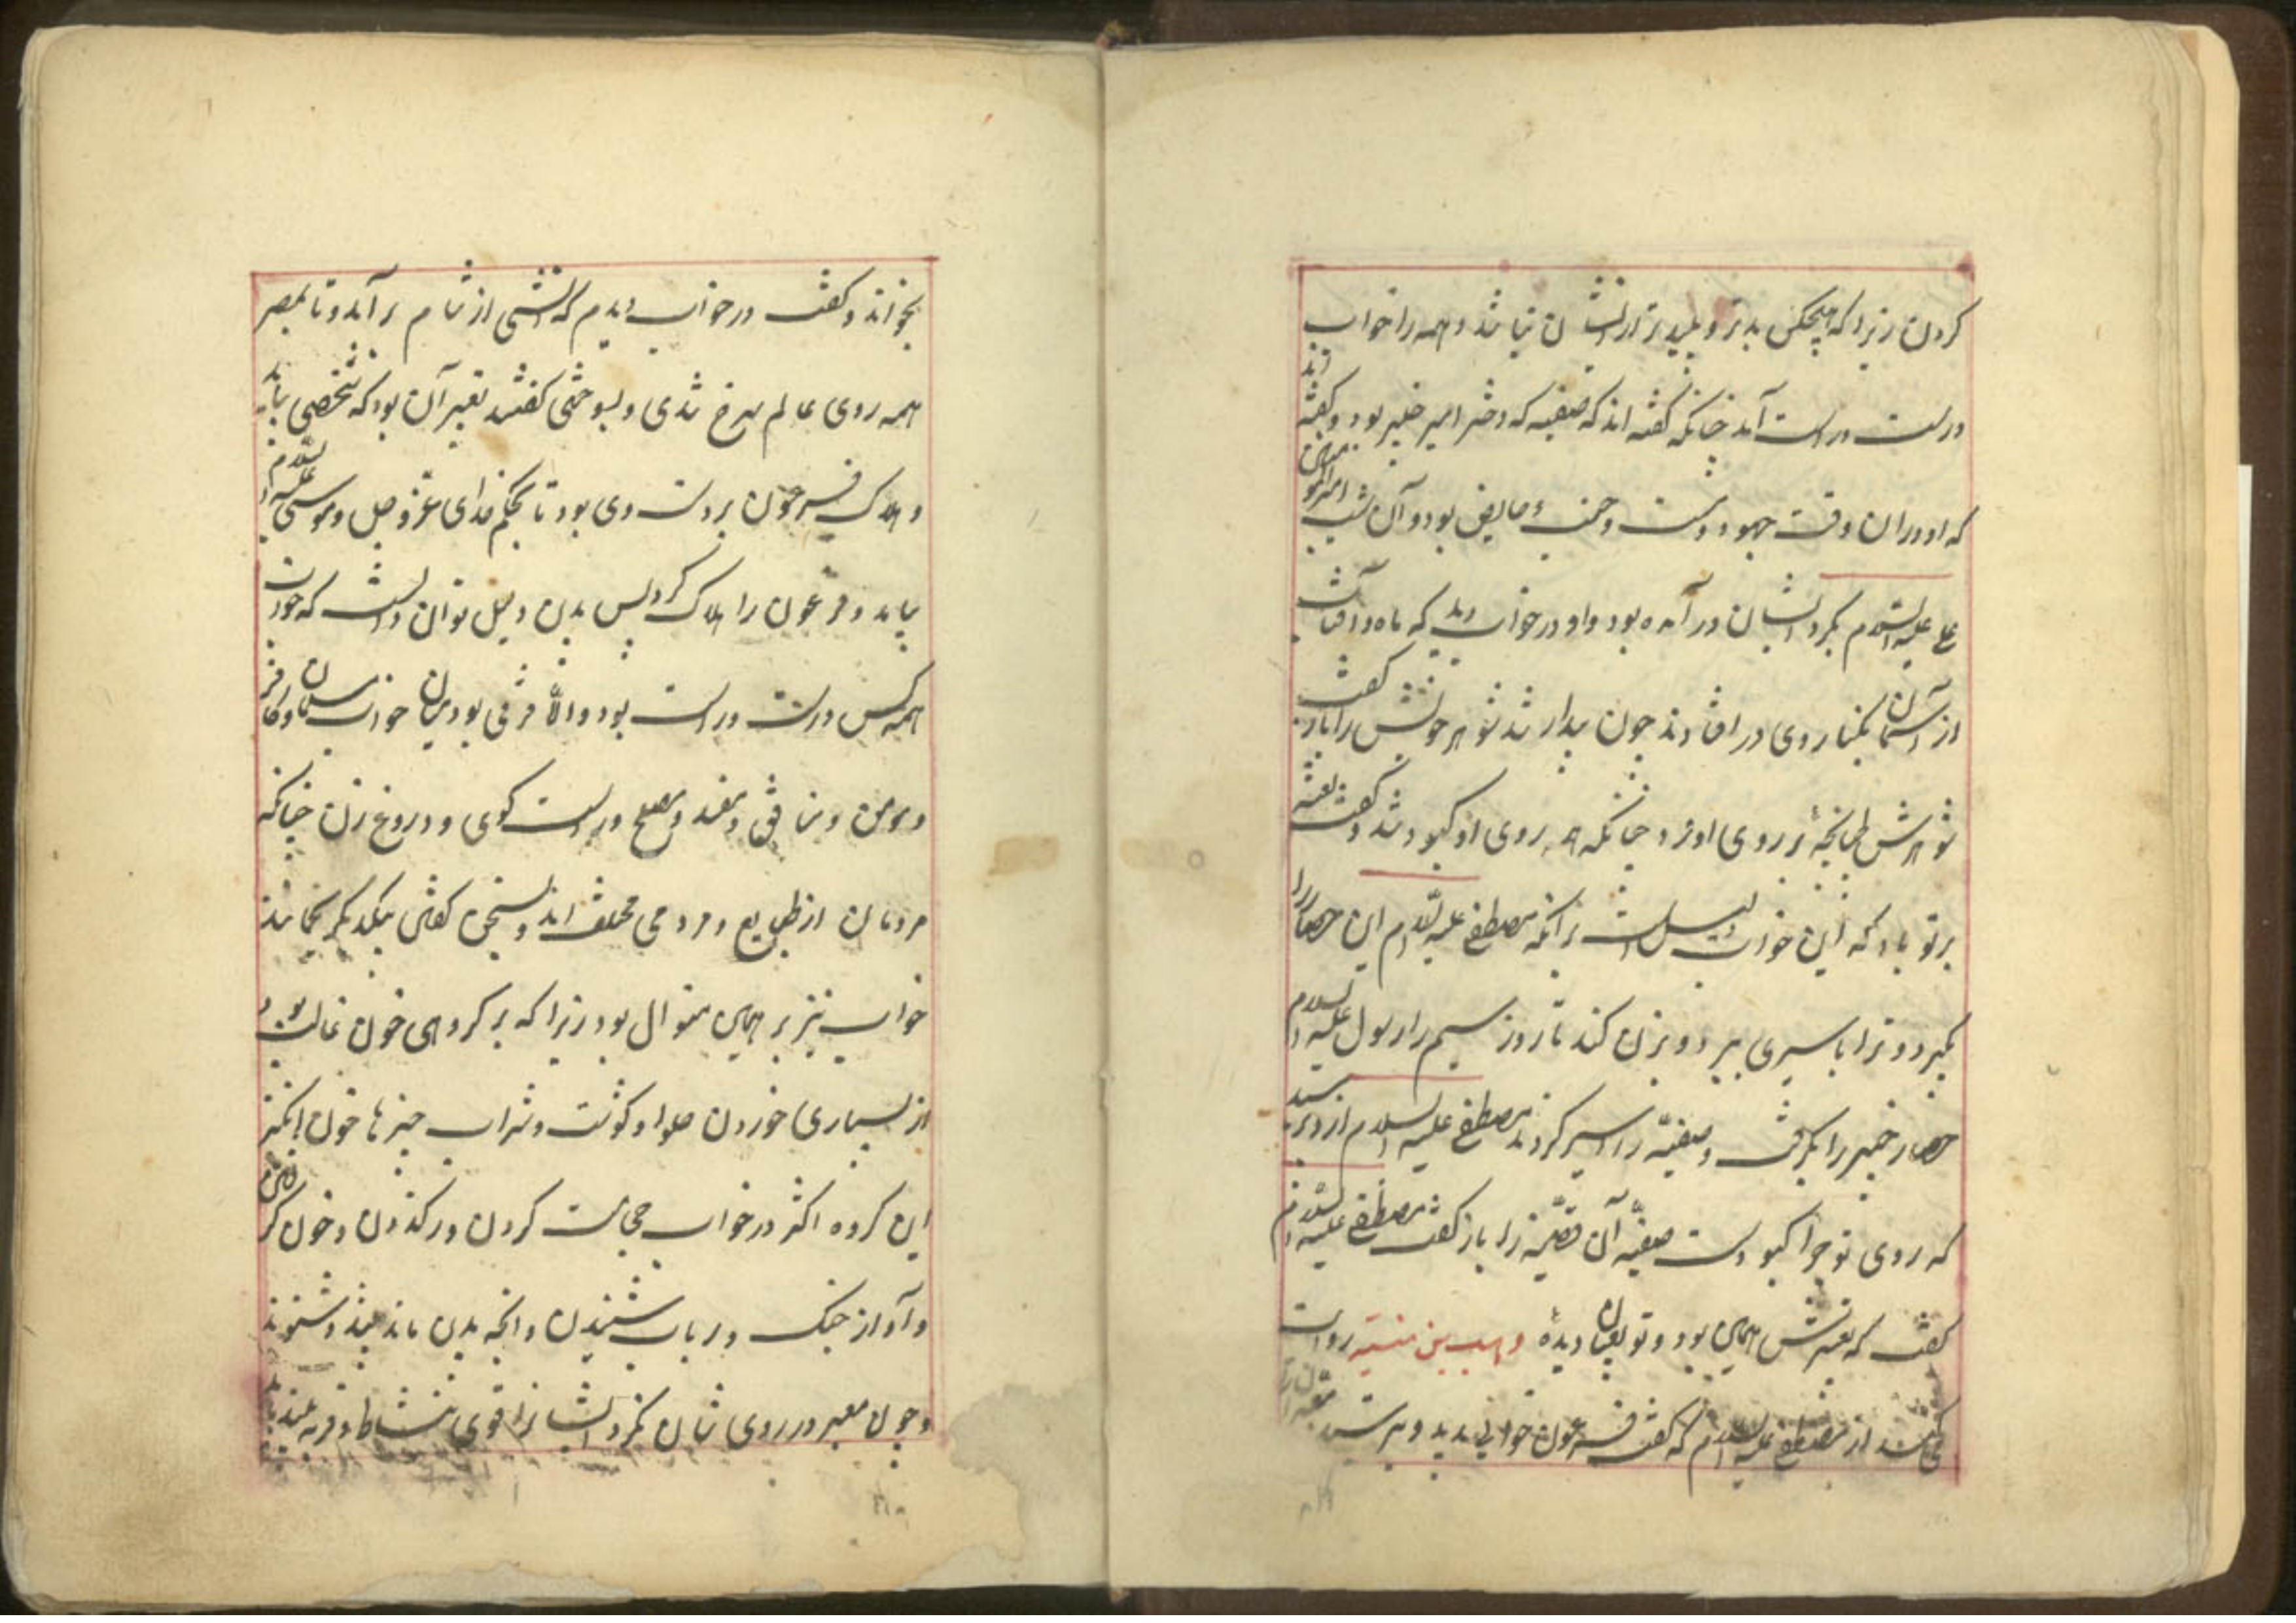 کردن زیرا که هیچکس بدتر و پلیدتر از ایشان نباشد و همه را خواب
درست و راست آمد چنانکه گفته اند که صفیه که دختر امیر خیبر بود و گفته اند
که او در آن وقت جهود و زشت و جنب و حایض بود و آن شب امیرالمومنین
علی علیه السلام بگرد ایشان در آمده بود و او در خواب دید که ماه و آفتاب
از آسمان بکنار وی در افتادند چون بیدار شد شوهر خویش را باز گفت
شوهرش طپانچهٔ بر روی او زد چنانکه همه روی او کبود شد و گفت لعنت
بر تو باد که این خواب دلیلست بر آنکه مصطفی علیه السلام این حصار را
بگیرد و ترا باسیری ببرد و بزن کند تا روز سیم را رسول علیه السلام
حصار خیبر را بگرفت و صفیه را اسیر کردند مصطفی علیه السلام از وی پرسید
که روی تو چرا کبودست صفیه آن قصه را باز گفت مصطفی علیه السلام
گفت که تعبیرش همان بود و تو بعیان دیدهٔ وهب بن منبه روایت
می کند از مصطفی علیه السلام که گفت فرعون خوابی بدید و بترسید معبران را
بخواند و گفت در خواب دیدم که آتشی از شام برآمد و تا بمصر
همه روی عالم سرخ شدی و بسوختی گفتند تعبیر آن بود که شخصی بیاید
و هلاک فرعون بر دست وی بود تا بحکم خدای عز و جل و موسی علیه السلام
بیامد و فرعون را هلاک کرد پس بدین دلیل توان دانست که خواب
همه کس درست و راست بود و الا فرقی بود میان خواب مسلمان و کافر
و مومن و منافق و مفسد و مصلح و راست گوی و دروغ زن چنانکه
مردمان از طبایع و مردمی مختلف اند و سخن گفتن بیکدیگر نمی مانند
خواب نیز بر همین منوال بود زیرا که بر گروهی خون غالب بود
از بسیاری خوردن حلوا و گوشت و شراب چیزها خون انگیز
این گروه اکثر در خواب حجامت کردن و رگ زدن و خون گرفتن
و آواز چنگ و رباب شنیدن و آنچه بدین ماند بینند و شنوند
و چون معبر در روی شان نگرد ایشانرا قوی با نشاط و فربه بیند باید